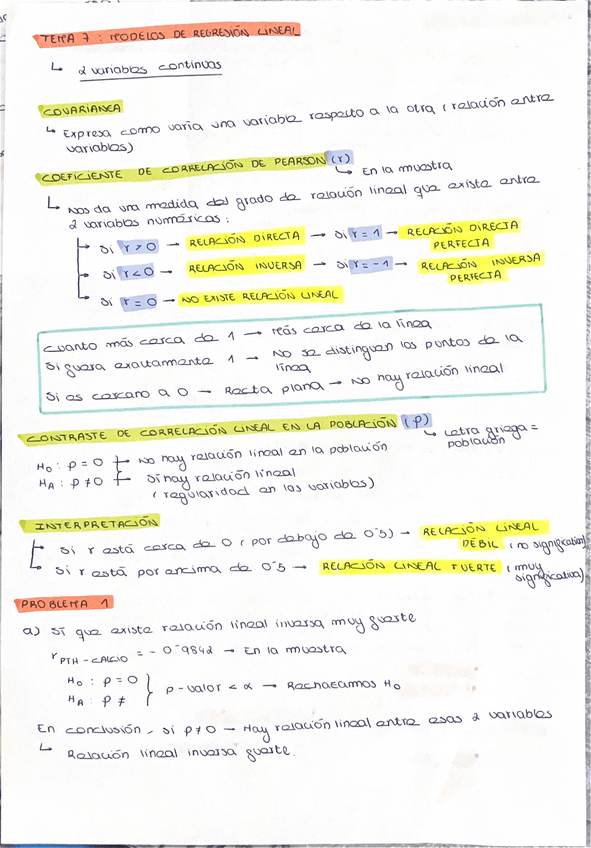 TEMA 7 : MODELOS DE REGRESIÓN LINEAL
↳ 2 variables continuas
COVARIANZA
↳ Expresa como varía una variable respecto a la otra (relación entre
variables)
COEFICIENTE DE CORRELACIÓN DE PEARSON (r)
↳ En la muestra
↳ Nos da una medida del grado de relación lineal que existe entre
2 variables numéricas :
Si r > 0 → RELACIÓN DIRECTA → Si r = 1 → RELACIÓN DIRECTA
PERFECTA
Si r < 0 → RELACIÓN INVERSA → Si r = -1 → RELACIÓN INVERSA
PERFECTA
Si r = 0 → NO EXISTE RELACIÓN LINEAL
Cuanto más cerca de 1 → Más cerca de la línea
Si fuera exactamente 1 → No se distinguen los puntos de la
línea
Si es cercano a 0 → Recta plana → No hay relación lineal
CONTRASTE DE CORRELACIÓN LINEAL EN LA POBLACIÓN (ρ)
↳ Letra griega =
población
H₀ : ρ = 0 → No hay relación lineal en la población
Hₐ : ρ ≠ 0 → Si hay relación lineal
(regularidad en las variables)
INTERPRETACIÓN
Si r está cerca de 0 (por debajo de 0'5) → RELACIÓN LINEAL
DÉBIL (no significativa)
Si r está por encima de 0'5 → RELACIÓN LINEAL FUERTE (muy
significativa)
PROBLEMA 1
a) Sí que existe relación lineal inversa muy fuerte
r PTH - CALCIO = - 0'9842 → En la muestra
H₀ : ρ = 0
Hₐ : ρ ≠ } p-valor < α → Rechazamos H₀
En conclusión, si ρ ≠ 0 → Hay relación lineal entre esas 2 variables
↳ Relación lineal inversa fuerte.